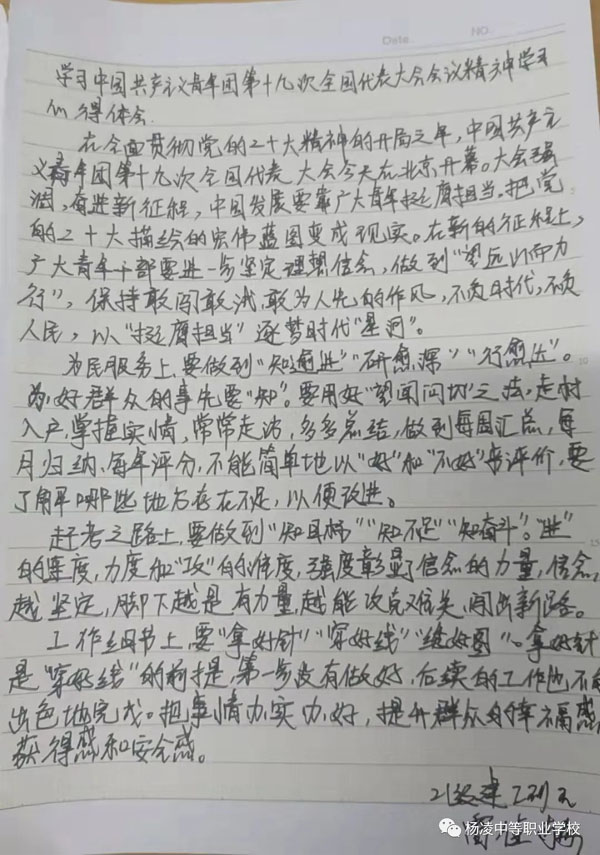 Date.
NO.
学习中国共产主义青年团第十九次全国代表大会会议精神学习
心得体会
在全面贯彻党的二十大精神的开局之年,中国共产主
义青年团第十九次全国代表大会今天在北京开幕。大会强
调,奋进新征程,中国发展要靠广大青年挺膺担当。把党
的二十大描绘的宏伟蓝图变成现实。在新的征程上,
广大青年干部要进一步坚定理想信念,做到“望远以而力
行”,保持敢闯敢试敢为人先的作风,不负时代,不负
人民,以“挺膺担当”逐梦时代“星河”。
为民服务上,要做到“知愈进”“研愈深”“行愈达”。
为好群众的事先要“知”。要用好“望闻问切”之法,走村
入户,掌握实情,常常走访,多多总结,做到每周汇总,每
月归纳,每年评分,不能简单地以“好”和“不好”来评价,要
了解哪些地方存在不足,以便改进。
赶考之路上,要做到“知目标”“知不足”“知奋斗”。“进”
的速度,力度和“攻”的难度,强度彰显了信念的力量,信念
越坚定,脚下越是有力量,越能攻克难关,闯出新路。
工作细节上,要“拿好针”“穿好线”“绣好图”。拿好针
是“穿好线”的前提,第一步没有做好,后续的工作也不能
出色地完成。把事情办实办好,提升群众的幸福感,
获得感和安全感。
21级建
杨凌中等职业学校